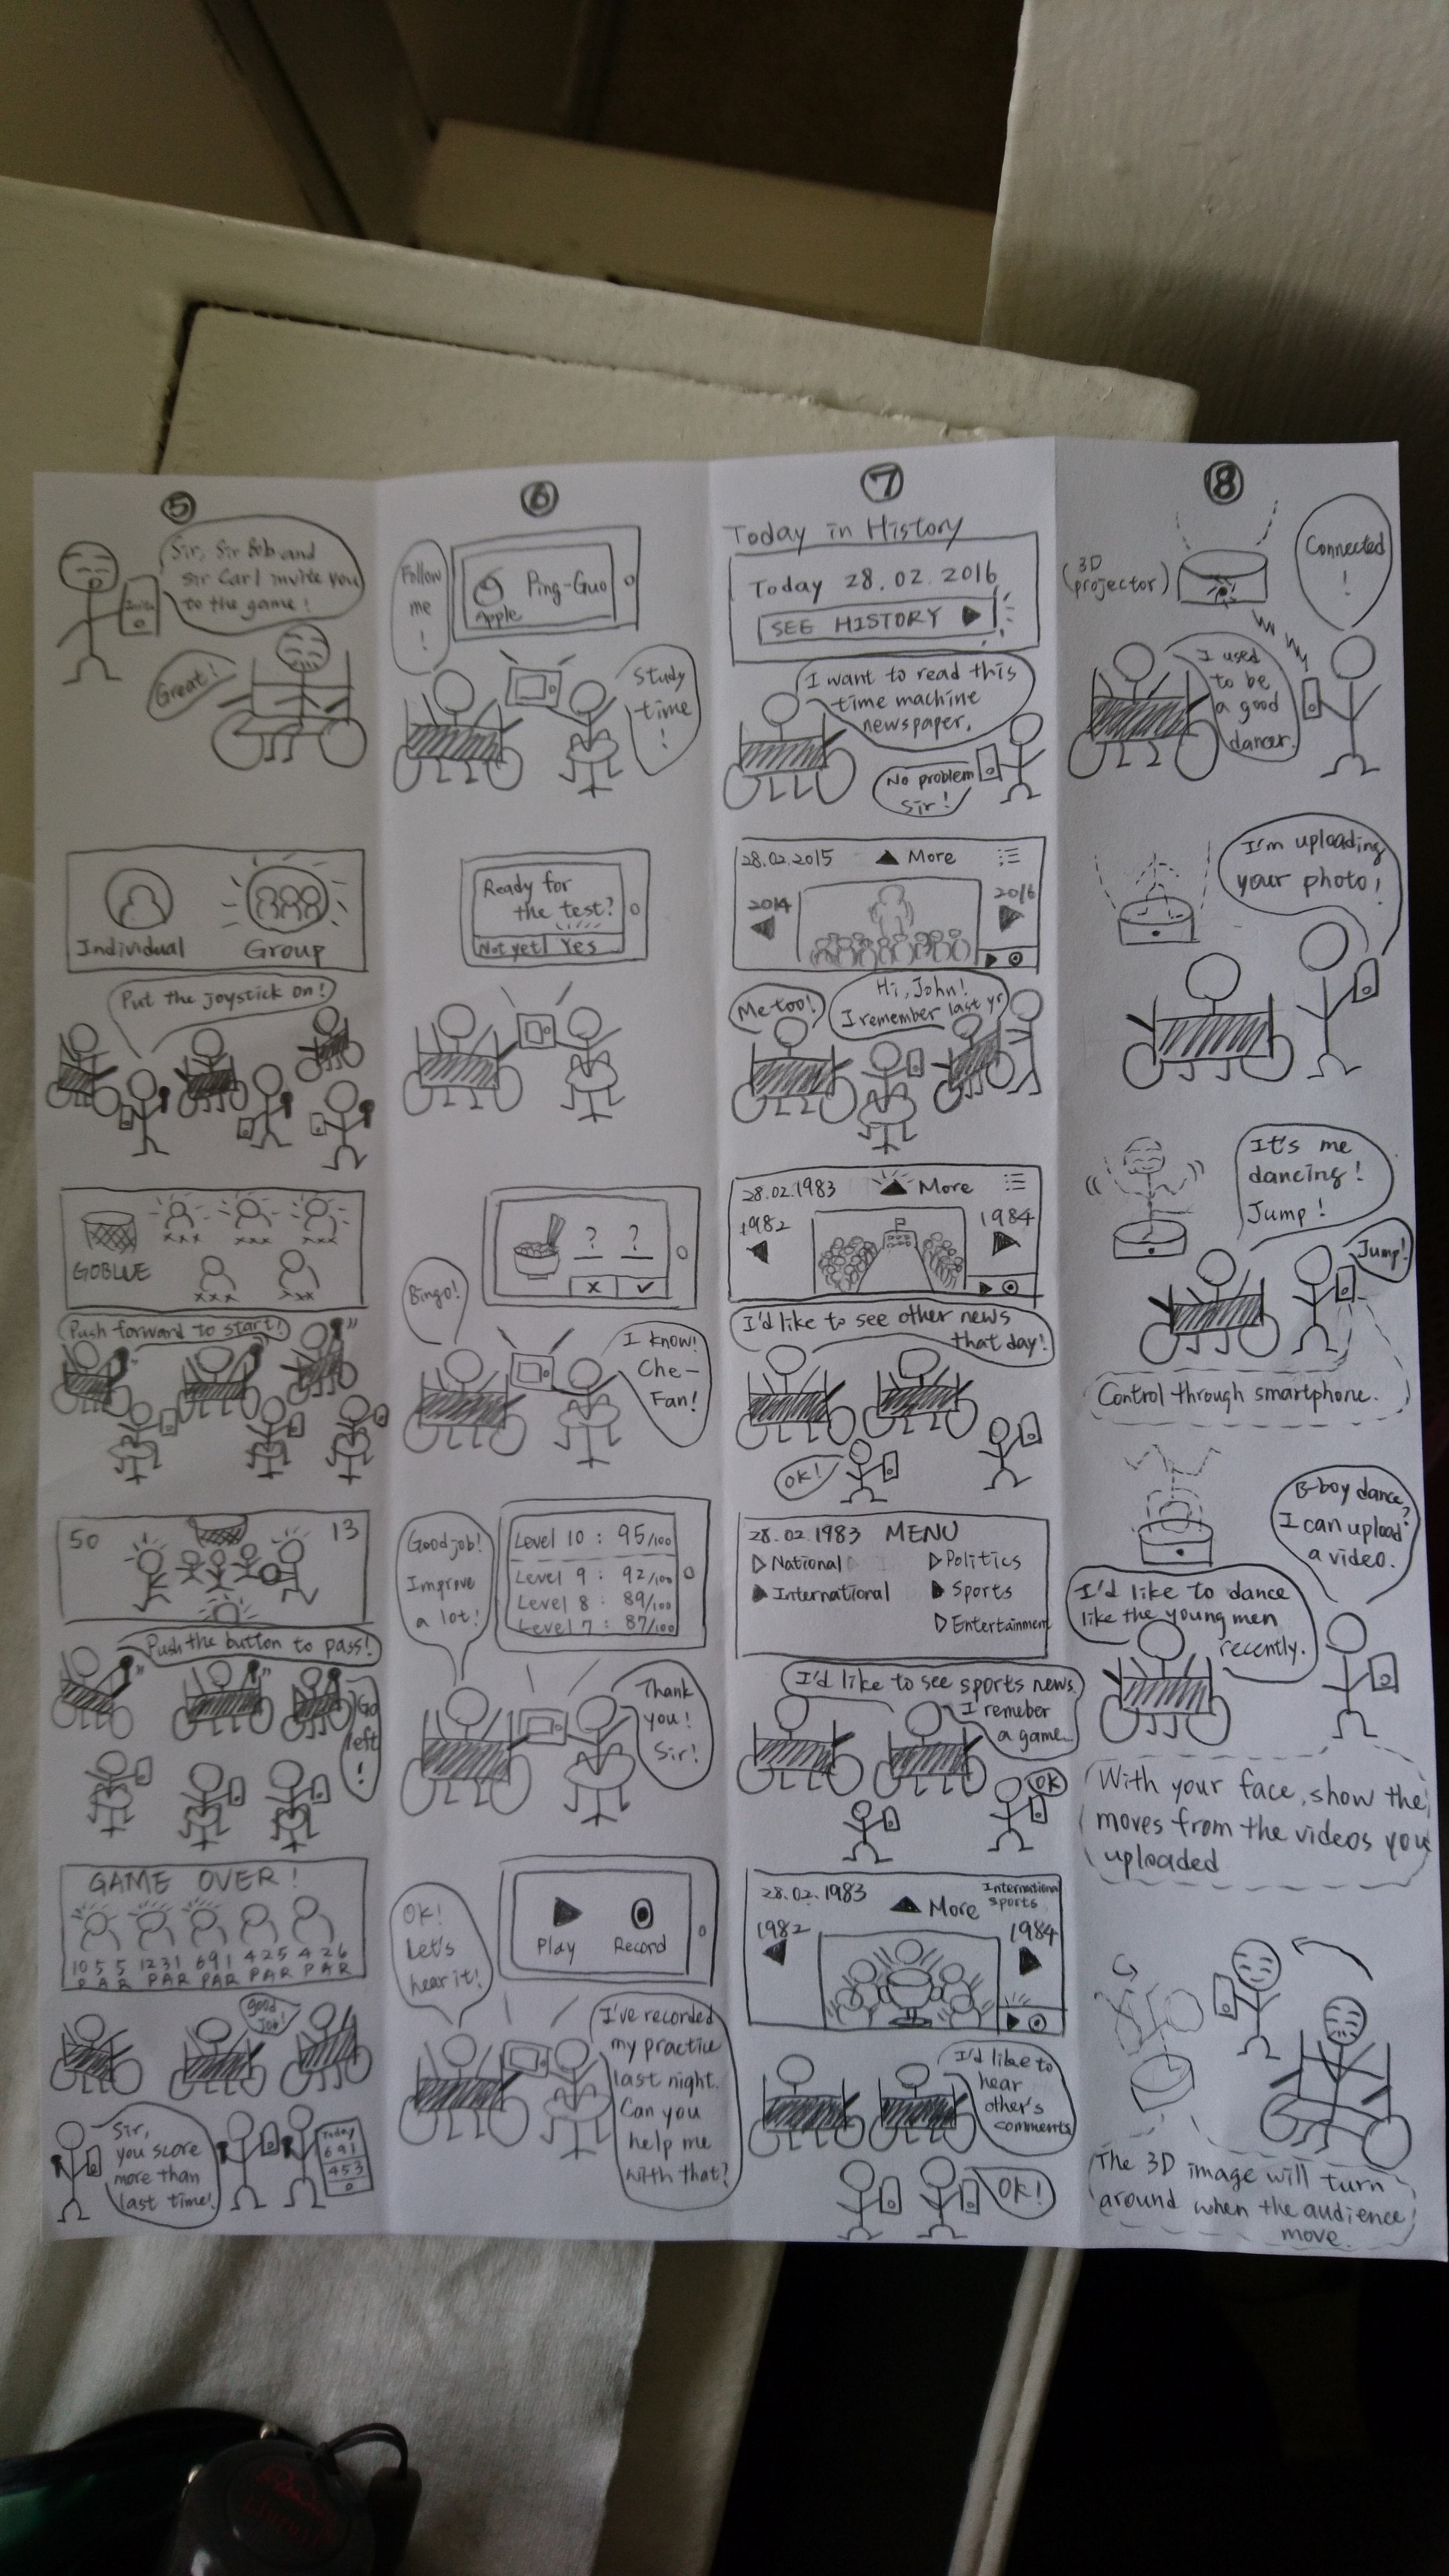 5
Sir, Sir Bob and
Sir Carl invite you
to the game!
Invite
Great!
Individual
Group
Put the joystick on!
GOBLUE
xxx xxx xxx
xxx xxx
Push forward to start!
50
13
Push the button to pass!
Go
left
!
GAME OVER!
10 5 5 12 3 1 6 9 1 4 2 5 4 2 6
P A R P A R P A R P A R P A R
Good
Job!
Sir,
you score
more than
last time!
Today
6 9 1
4 5 3
6
Follow
me
!
Ping-Guo
Apple
Study
time
!
Ready for
the test?
Not yet Yes
? ?
x ✓
Bingo!
I know!
Che-
Fan!
Good job!
Improve
a lot!
Level 10 : 95/100
Level 9 : 92/100
Level 8 : 89/100
Level 7 : 87/100
Thank
you!
Sir!
OK!
Let's
hear it!
Play
Record
I've recorded
my practice
last night.
Can you
help me
with that?
7
Today in History
Today 28.02.2016
SEE HISTORY ▶
I want to read this
time machine
newspaper.
No problem
Sir!
28.02.2015 ▲ More
2014
2016
Me too!
Hi, John!
I remember last yr
28.02.1983 ▲ More
1982
1984
I'd like to see other news
that day!
OK!
28.02.1983 MENU
▷ National
▷ Politics
▶ International
▶ Sports
▷ Entertainment
I'd like to see sports news.
I remeber
a game.
OK
28.02.1983 ▲ More
International
sports
1982
1984
I'd like to
hear
other's
comments
OK!
8
(3D
projector)
Connected
!
I used
to be
a good
dancer.
I'm uploading
your photo!
It's me
dancing!
Jump!
Jump!
Control through smartphone.
B-boy dance?
I can upload
a video.
I'd like to dance
like the young men
recently.
With your face, show the
moves from the videos you
uploaded
The 3D image will turn
around when the audience
move.